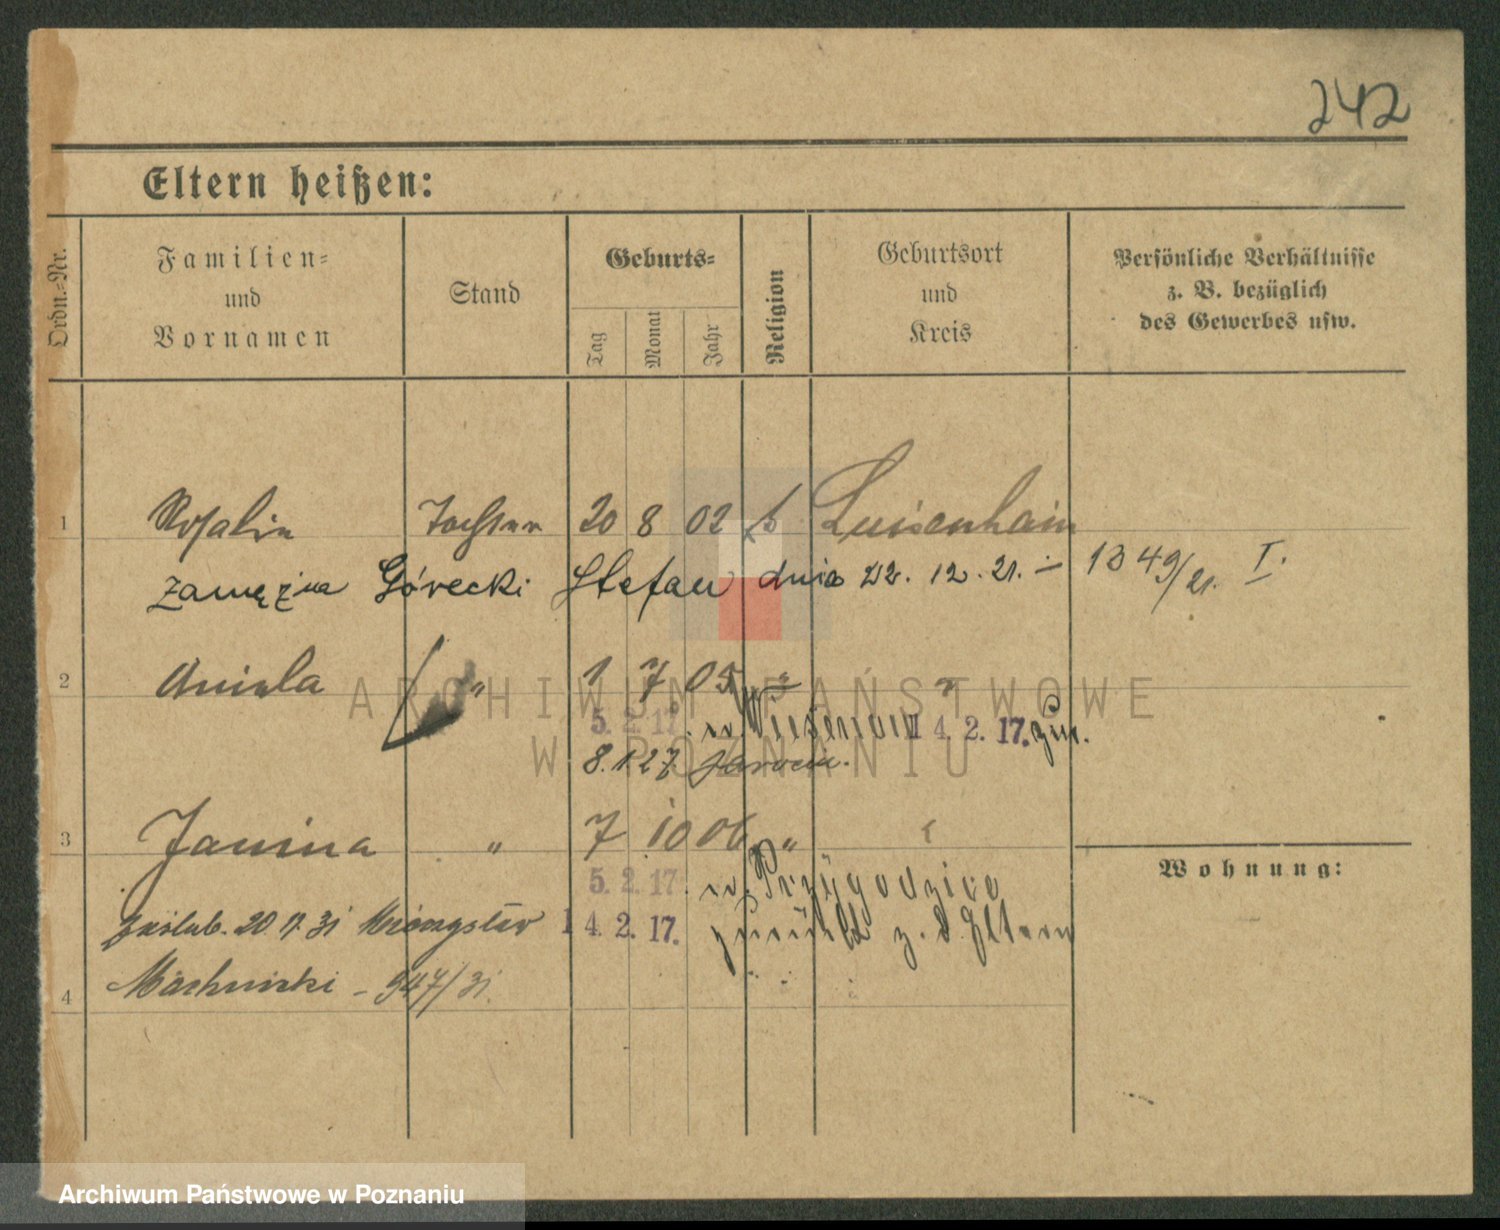 242
Eltern heißen:
Ordn.-Nr.
Familien- und Vornamen
Stand
Geburts-
Tag
Monat
Jahr
Religion
Geburtsort und Kreis
Persönliche Verhältnisse z. B. bezüglich des Gewerbes usw.
1 Rosalie Tochter 20 8 02 k Luisenhain
zamężna Górecki Stefan dnia 22. 12. 21. – 1349/21. I.
2 Aniela " 1 7 05 " "
5. 2. 17. n. Wiesenau 14. 2. 17. zur.
8. 1. 27. Jarocin.
3 Janina " 7 10 06 "
Wohnung:
5. 2. 17. n. Przygodzice
zaślub. 20 11. 31 14. 2. 17. zurück z. d. Eltern
4 Machnicki – 947/31.
ARCHIWUM PAŃSTWOWE
W POZNANIU
Archiwum Państwowe w Poznaniu